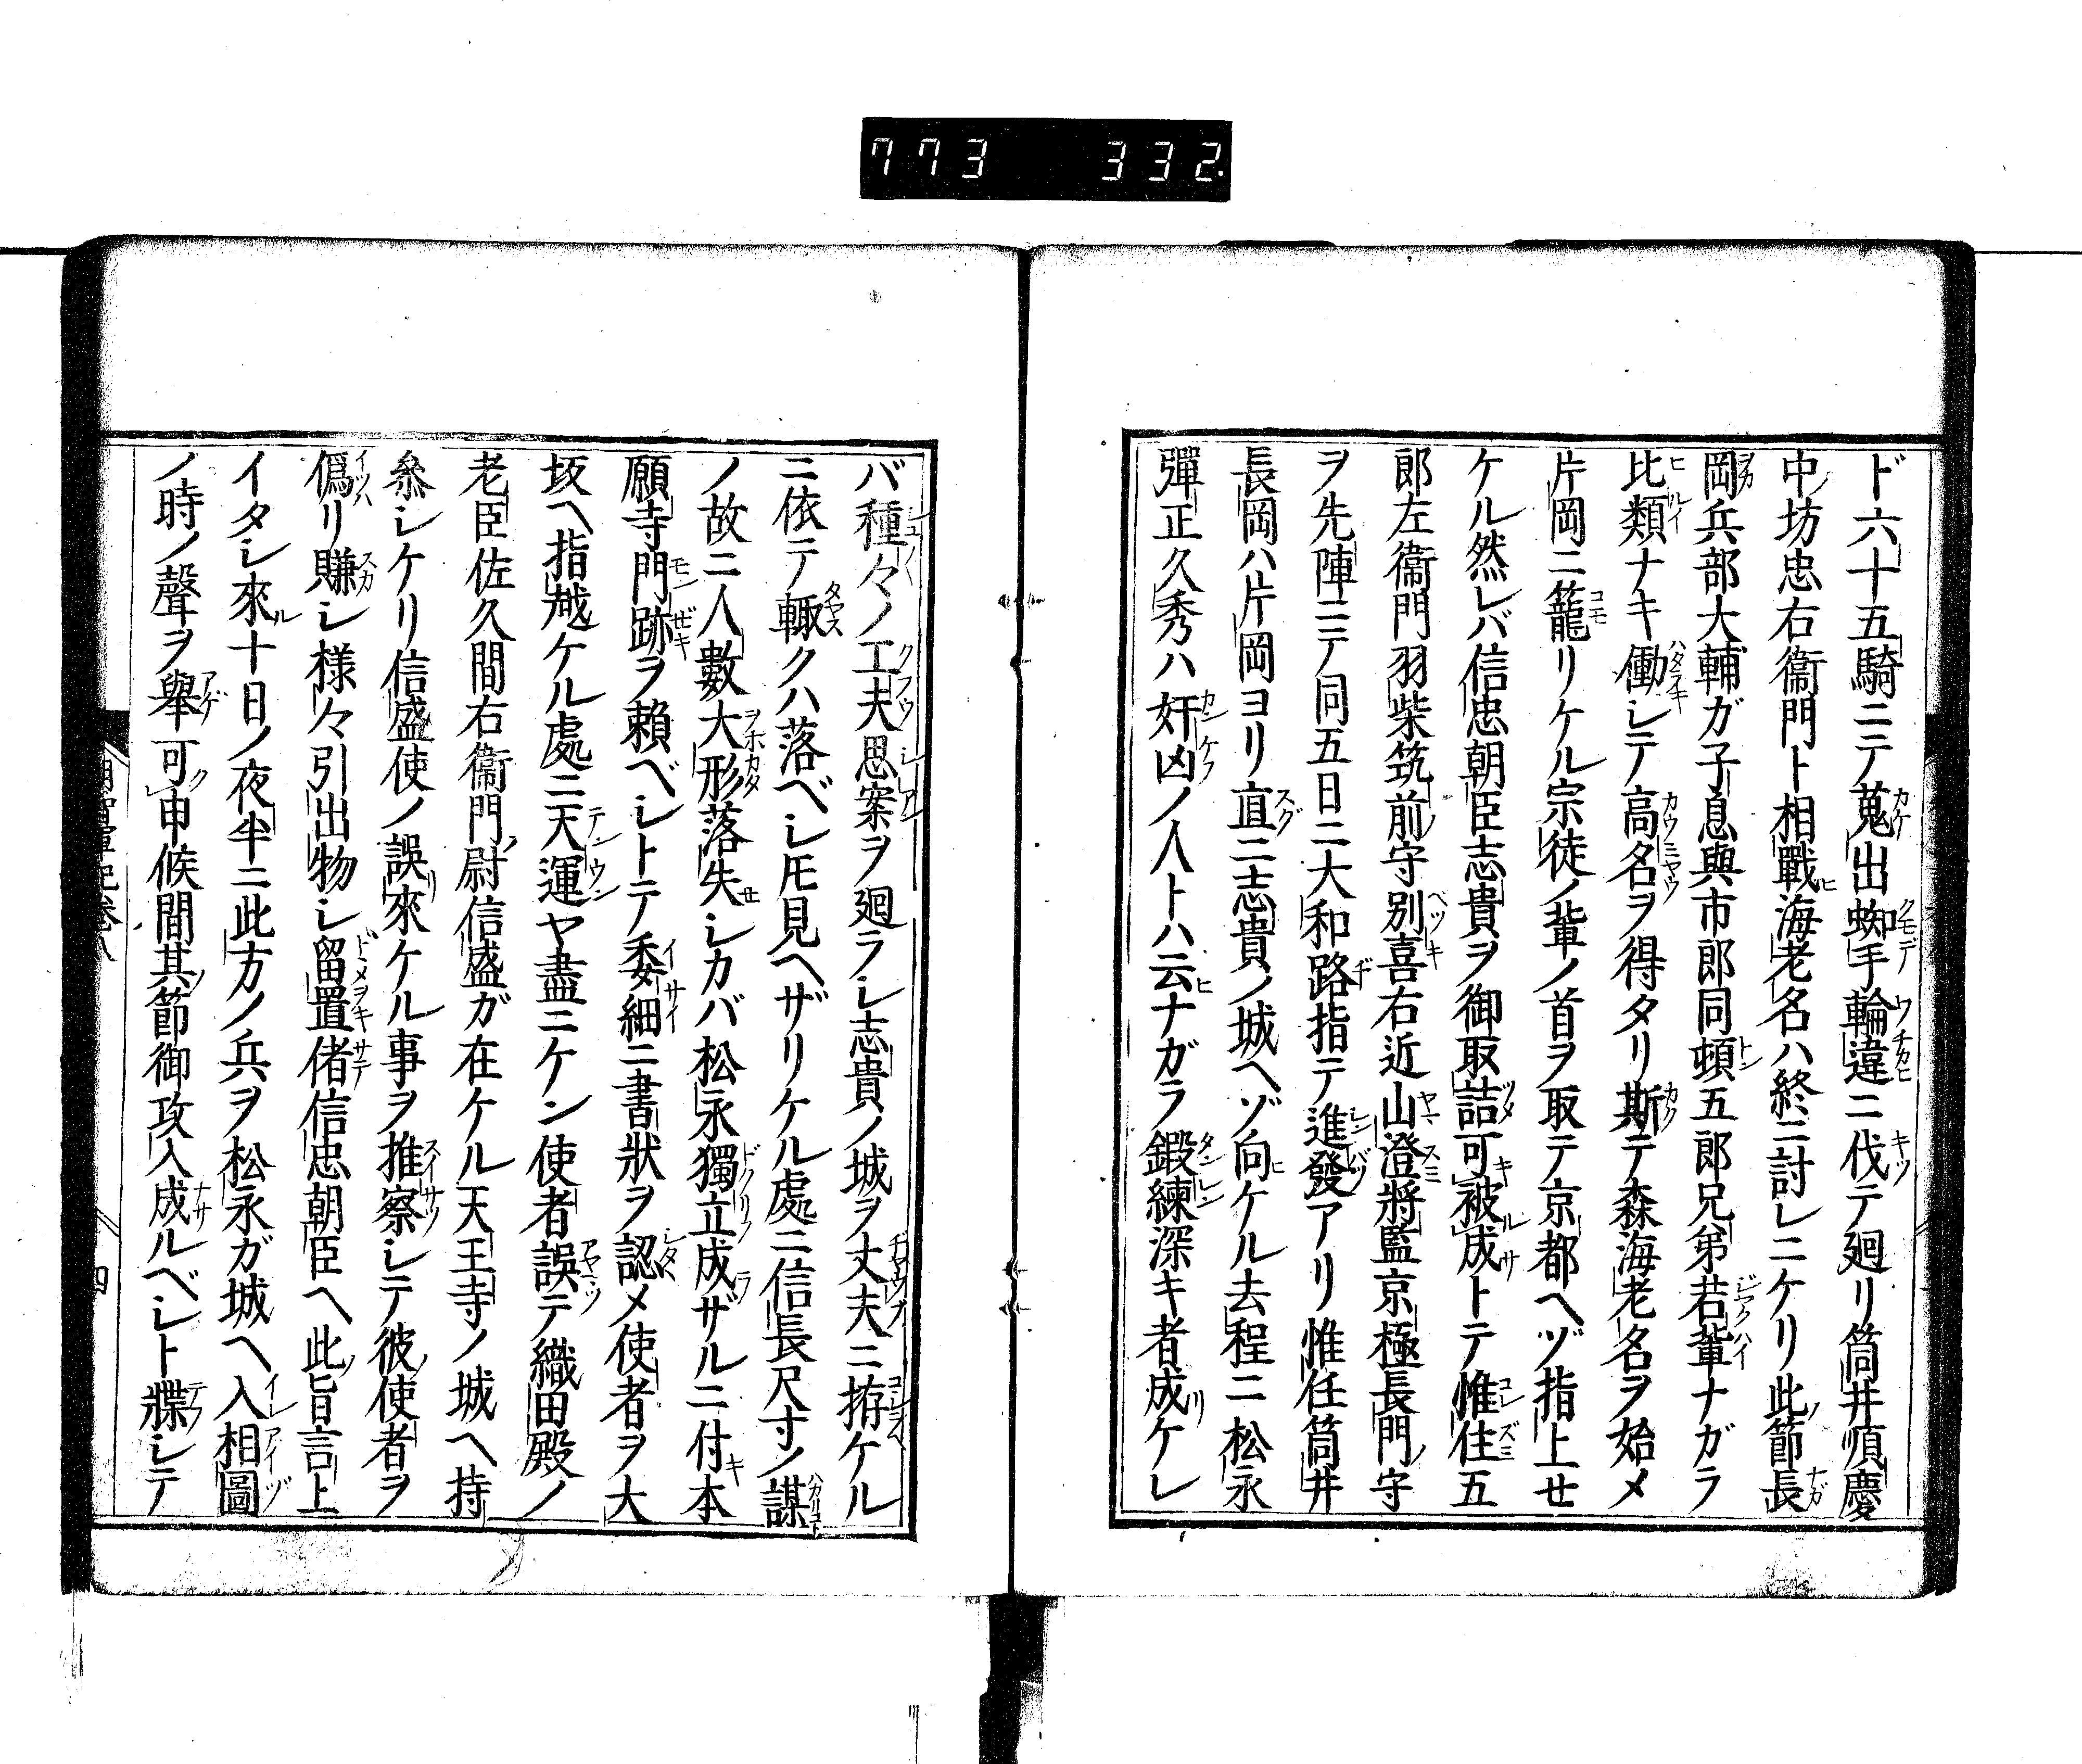 773 332.
ド六十五騎ニテ蒐出蜘手輪違ニ伐テ廻リ筒井順慶
中坊忠右衞門ト相戰海老名ハ終ニ討レニケリ此節長
岡兵部大輔ガ子息與市郎同頓五郎兄弟若輩ナガラ
比類ナキ働シテ高名ヲ得タリ斯テ森海老名ヲ始メ
片岡ニ籠リケル宗徒ノ輩ノ首ヲ取テ京都ヘヅ指上せ
ケル然レバ信忠朝臣志貴ヲ御取詰可被成トテ惟住五
郎左衞門羽柴筑前守別喜右近山澄將監京極長門守
ヲ先陣ニテ同五日ニ大和路指テ進發アリ惟任筒井
長岡ハ片岡ヨリ直ニ志貴ノ城ヘゾ向ケル去程ニ松永
彈正久秀ハ奸凶ノ人トハ云ナガラ鍛練深キ者成ケレ
バ種々ノ工夫思案ヲ廻ラシ志貴ノ城ヲ丈夫ニ拵ケル
ニ依テ輙クハ落ベシ𪜈見ヘザリケル處ニ信長尺寸ノ謀
ノ故ニ人數大形落失シカバ松永獨立成ザルニ付本
願寺門跡ヲ頼ベシトテ委細ニ書狀ヲ認メ使者ヲ大
坂ヘ指越ケル處ニ天運ヤ盡ニケン使者誤テ織田殿ノ
老臣佐久間右衞門尉信盛ガ在ケル天王寺ノ城ヘ持
參シケリ信盛使ノ誤來ケル事ヲ推察シテ彼使者ヲ
僞リ賺シ様々引出物シ留置偖信忠朝臣ヘ此旨言上
イタシ來十日ノ夜半ニ此方ノ兵ヲ松永ガ城ヘ入相圖
ノ時ノ聲ヲ擧可申候間其節御攻入成ルベシト牒シテ
四